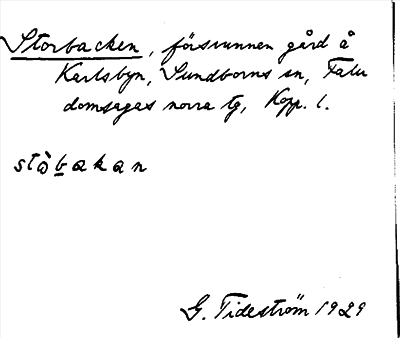 Storbacken, försvunnen gård å
Karlsbyn, Sundborns sn, Falu
domsagas norra tg, Kopp. l.
stòbakan
G. Tideström 1929